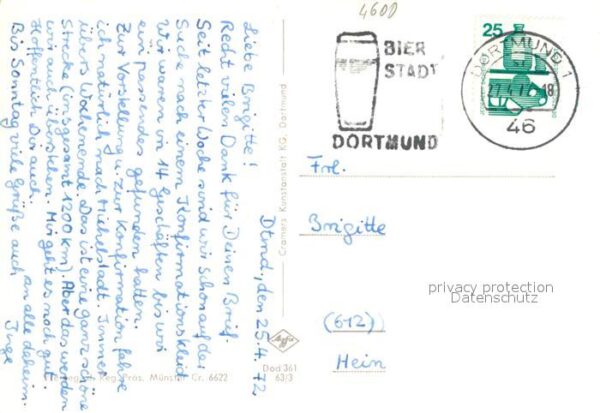 Dtmd, den 25.4.72
Liebe Brigitte!
Recht vielen Dank für Deinen Brief.
Seit letzter Woche sind wir schon auf der
Suche nach einem Konfirmationskleid
Wir waren in 14 Geschäften bis wir
ein passendes gefunden hatten.
Zur Vorstellung u. zur Konfirmation fahre
ich natürlich nach Michelstadt. Immer
übers Wochenende. Das ist eine ganz schöne
Strecke (insgesamt 1200 km). Aber das werden
wir auch überstehen. Mir geht es noch gut.
Hoffentlich Dir auch.
Bis Sonntag viele Grüße auch an alle daheim.
Inge
Cramers Kunstanstalt KG, Dortmund
Agfa
Dod 361
63/3
Reg. Präs. Münster Cr. 6622
4600
BIER
STADT
DORTMUND
25
DORTMUND 1
18
46
Frl.
Brigitte
privacy protection
Datenschutz
(612)
Hein